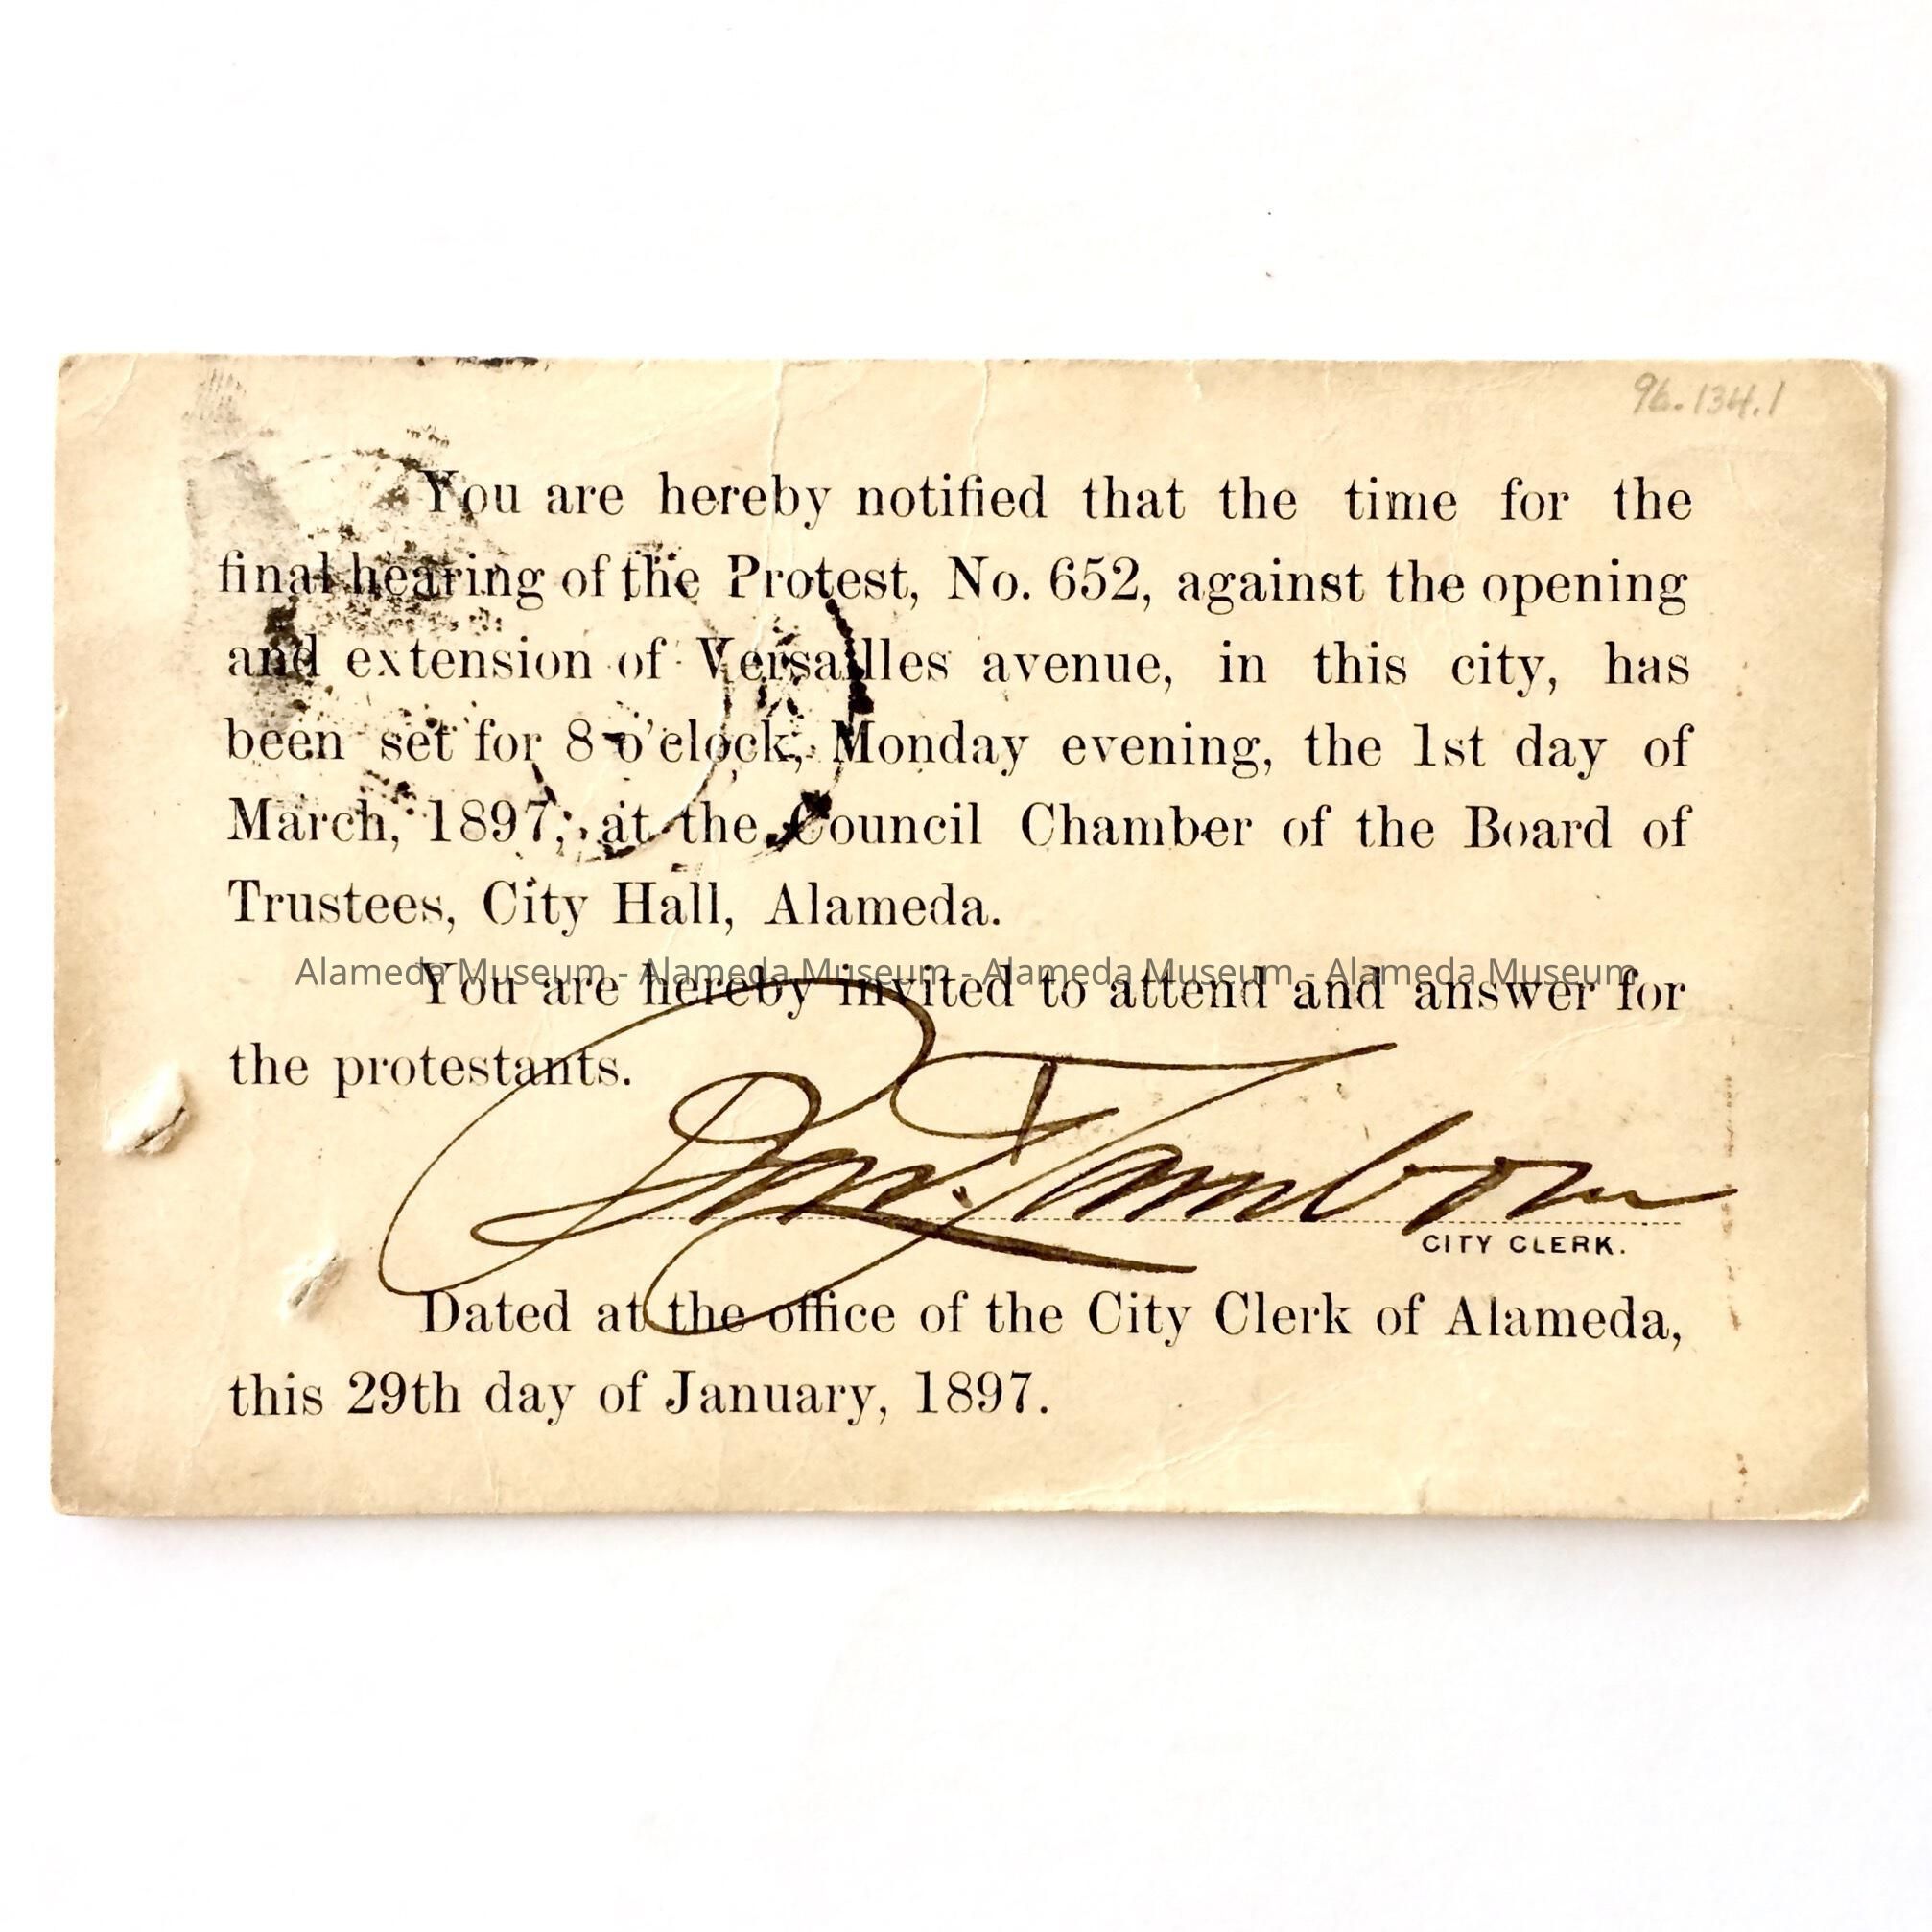 96.134.1
You are hereby notified that the time for the
final hearing of the Protest, No. 652, against the opening
and extension of Versailles avenue, in this city, has
been set for 8 o'clock, Monday evening, the 1st day of
March, 1897, at the Council Chamber of the Board of
Trustees, City Hall, Alameda.
Alameda Museum - Alameda Museum - Alameda Museum - Alameda Museum
You are hereby invited to attend and answer for
the protestants.
CITY CLERK.
Dated at the office of the City Clerk of Alameda,
this 29th day of January, 1897.